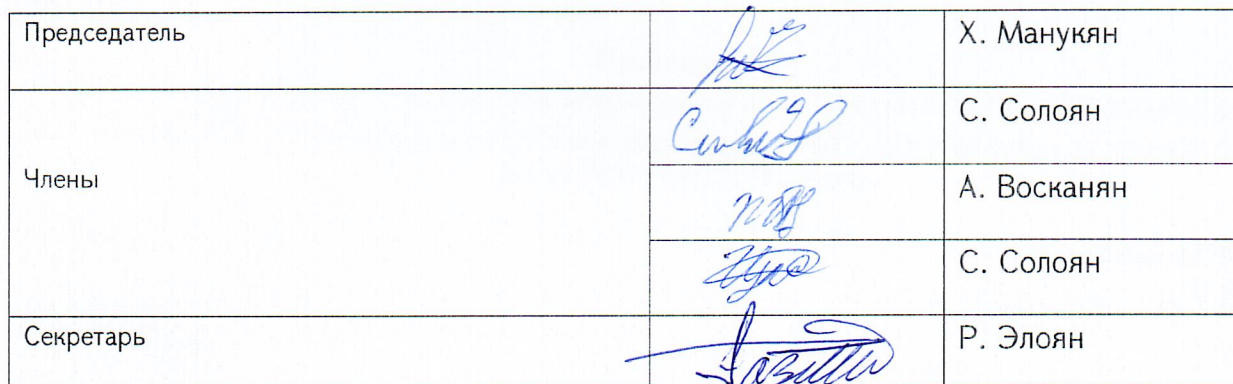 Председатель Х. Манукян
С. Солоян
Члены А. Восканян
С. Солоян
Секретарь Р. Элоян